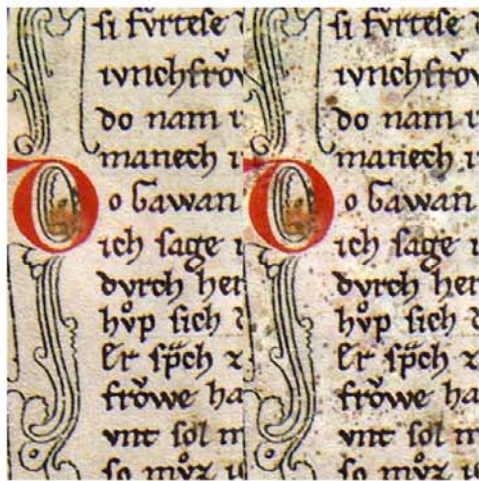 si fvrtese
ivnchfrǒw
do nam
manech
Do Gawan
ich sage
dvrch her
hv̊p sich
Er sp̈ch z
frǒwe ha
vnt sol m
so mv̊z
si fvrtese
ivnchfrǒw
do nam
manech
Do Gawan
ich sage
dvrch her
hv̊p sich
Er sp̈ch z
frǒwe ha
vnt sol m
so mv̊z